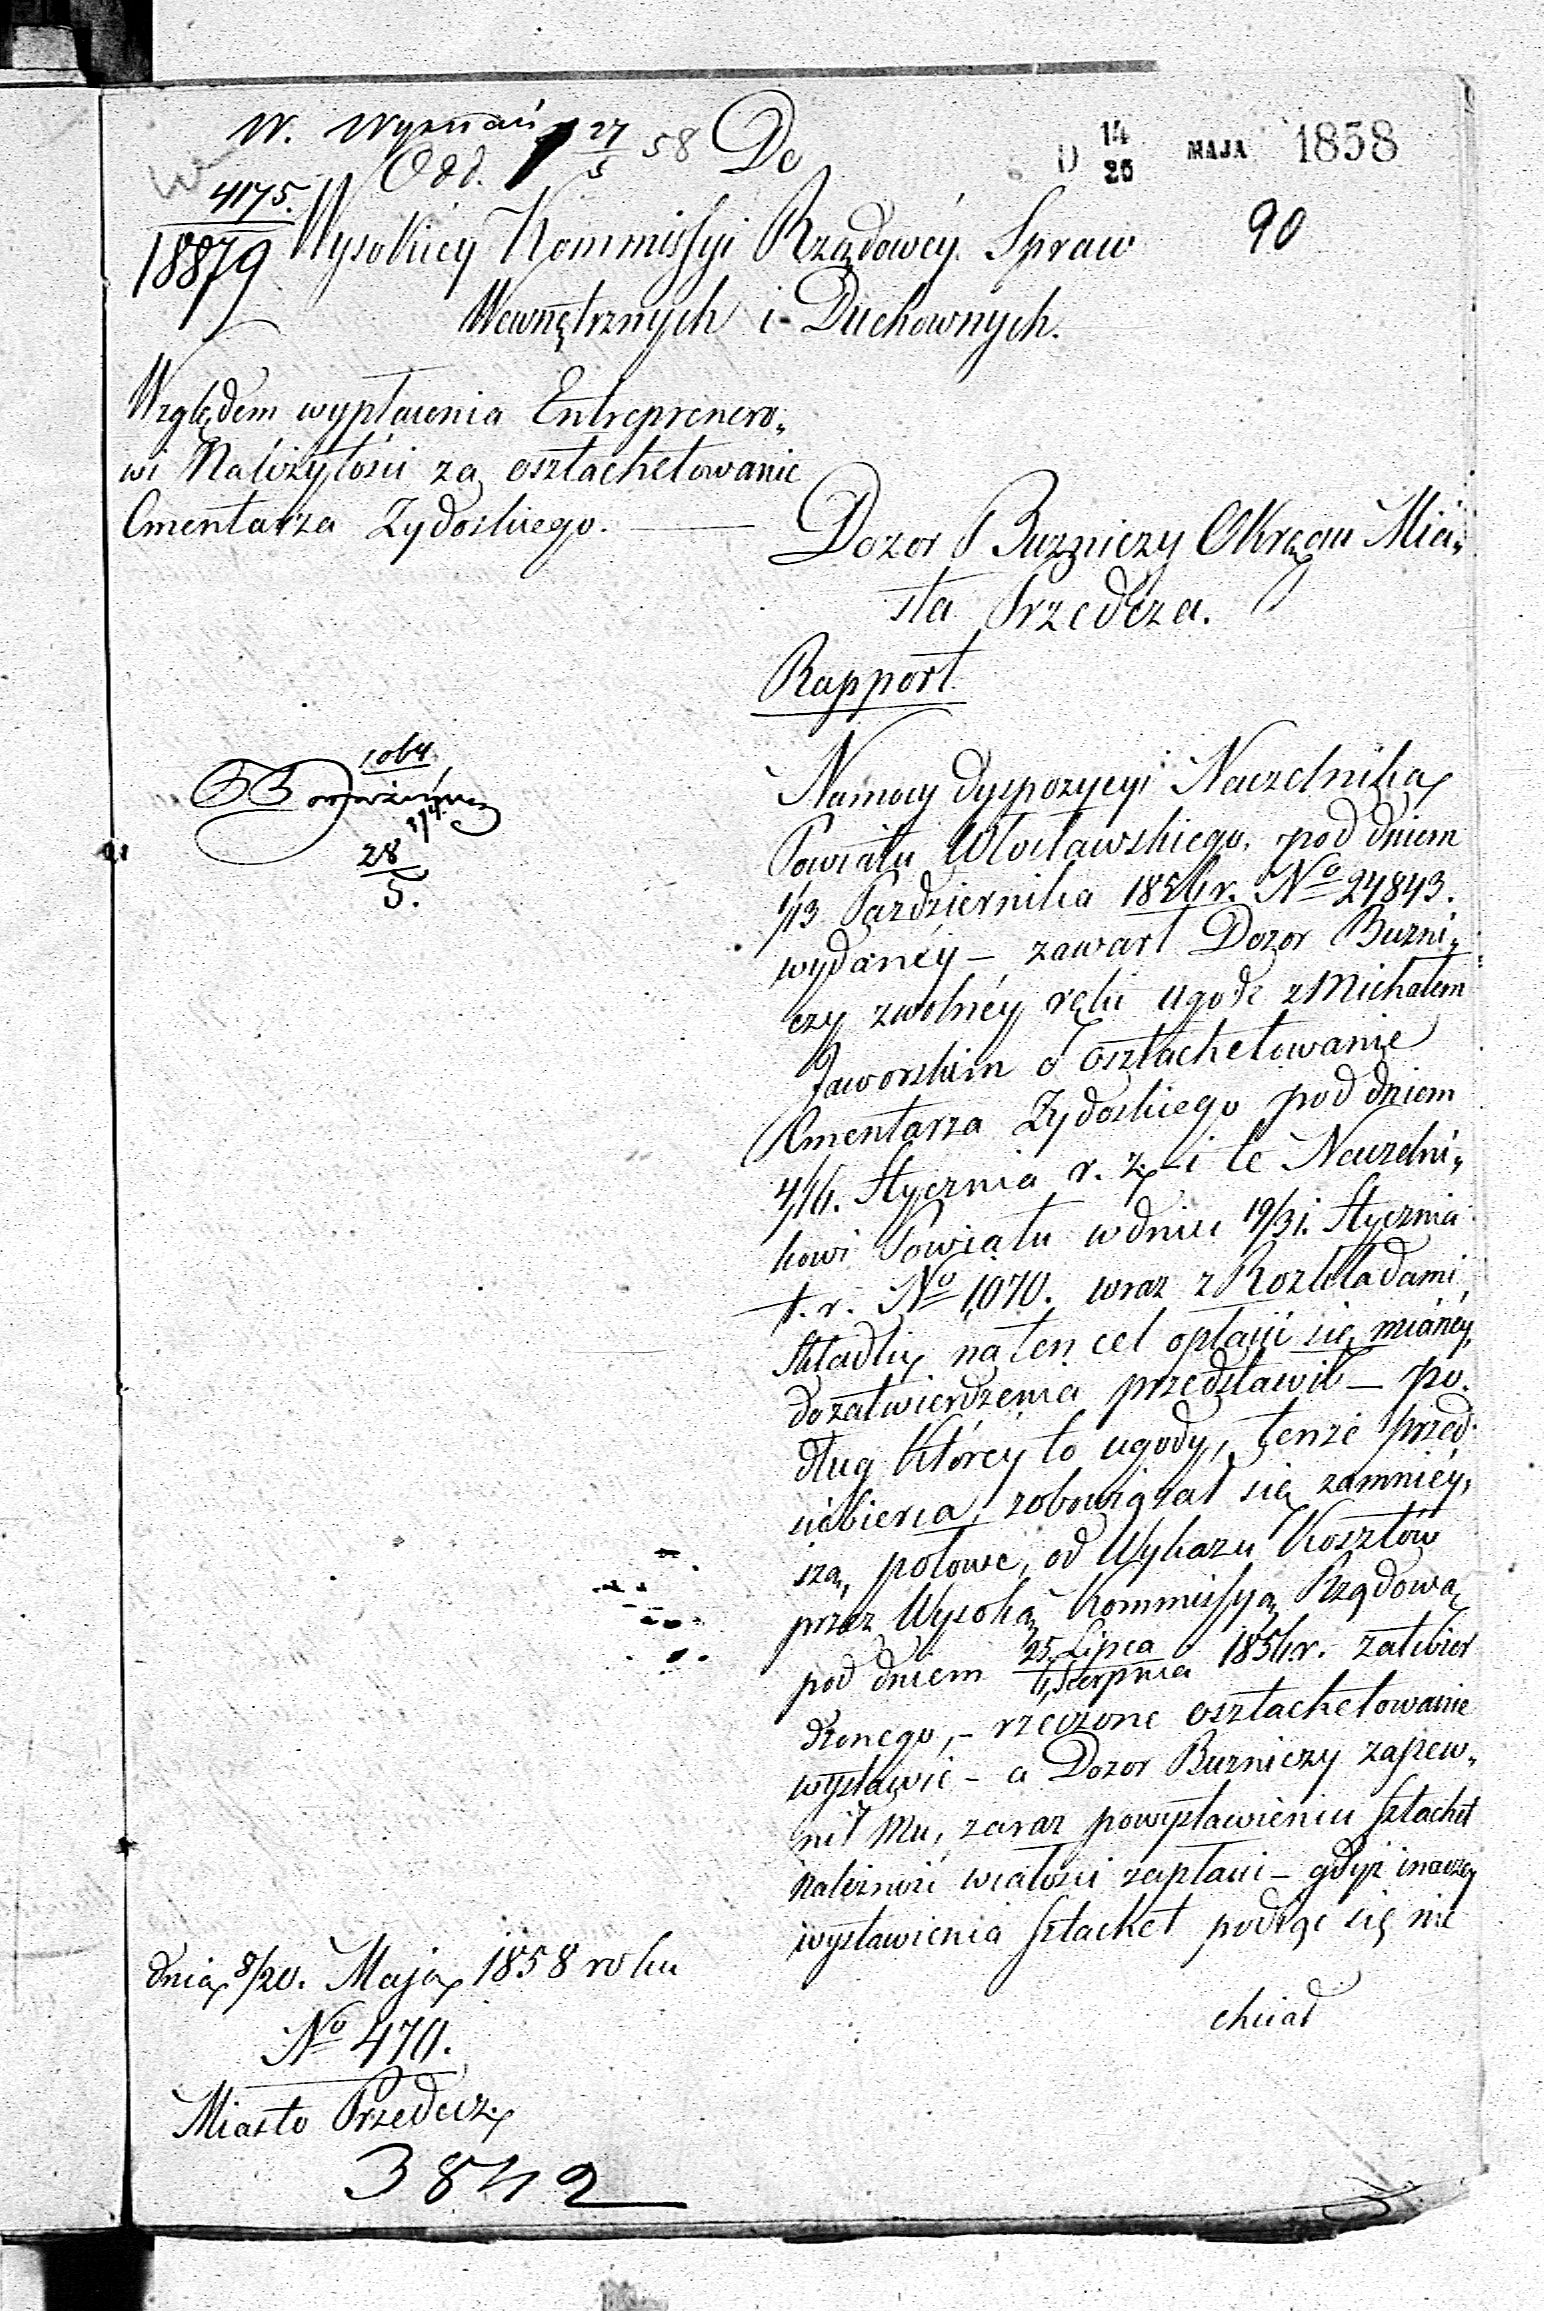 W. Wyznań 27/5 58
Odd. 1
D 14/26 MAJA 1858
90
4175.
18879
Do
Wysokiéy Kommissyi Rządowéy Spraw
Wewnętrznych i Duchownych.
Względem wypłacenia Entreprenero„
wi Należytości za osztachetowanie
Cmentarza Żydoskiego.
Dozor Buzniczy Okręgu Mia„
sta Przedcza.
Rapport
Namocy dyspozycyi Naczelnika
Powiatu Włocławskiego, pod dniem
1/13 Pazdziernika 1856 r. No 24843.
wydanéy – zawarł Dozor Buzni„
czy zwolnéy ręki ugodę z Michałem
Jaworskim o osztachetowanie
Cmentarza Żydoskiego pod dniem
4/16. Stycznia r. z. i te Naczelni„
kowi Powiatu w dniu 19/31. Stycznia
t. r. No 1,070. wraz z Rozkładami
Składki na ten cel opłacić się mianéy,
dozatwierdzenia przedstawił – po„
dług któréy to ugody, tenże przed„
siebierca, zobowiązał się zamniéy„
szą, połowę, od Wykazu Kosztów
przez Wysoką Kommissyą Rządową
pod dniem 25 Lipca / 6 Sierpnia 1856 r. zatwier
dzonego, – rzeczone osztachetowanie
wystawić – a Dozor Buzniczy zapew„
nił Mu, zaraz powystawieniu sztachet
należność wcałości zapłaci – gdyż inaczéy
wystawienia sztachet podjąć się nie
chciał
1064
28/5.
dnia 8/20. Maja 1858 roku
No 470.
Miasto Przedecz
3842